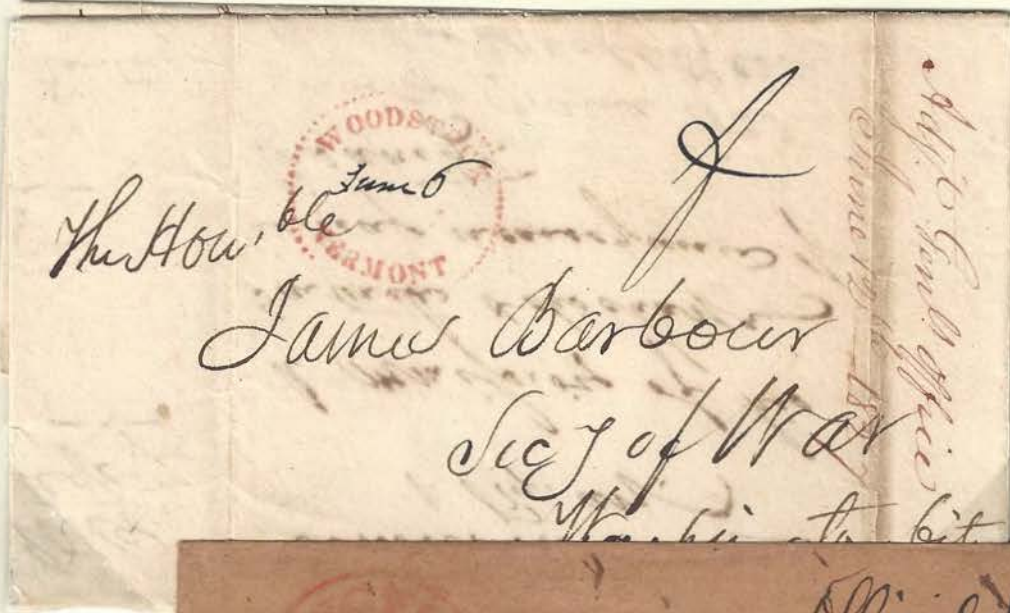 WOODSTOCK
June 6
VERMONT
The Hon,ble
James Barbour
Secy of War
Washington City
Adjt Genl's Office
June 12